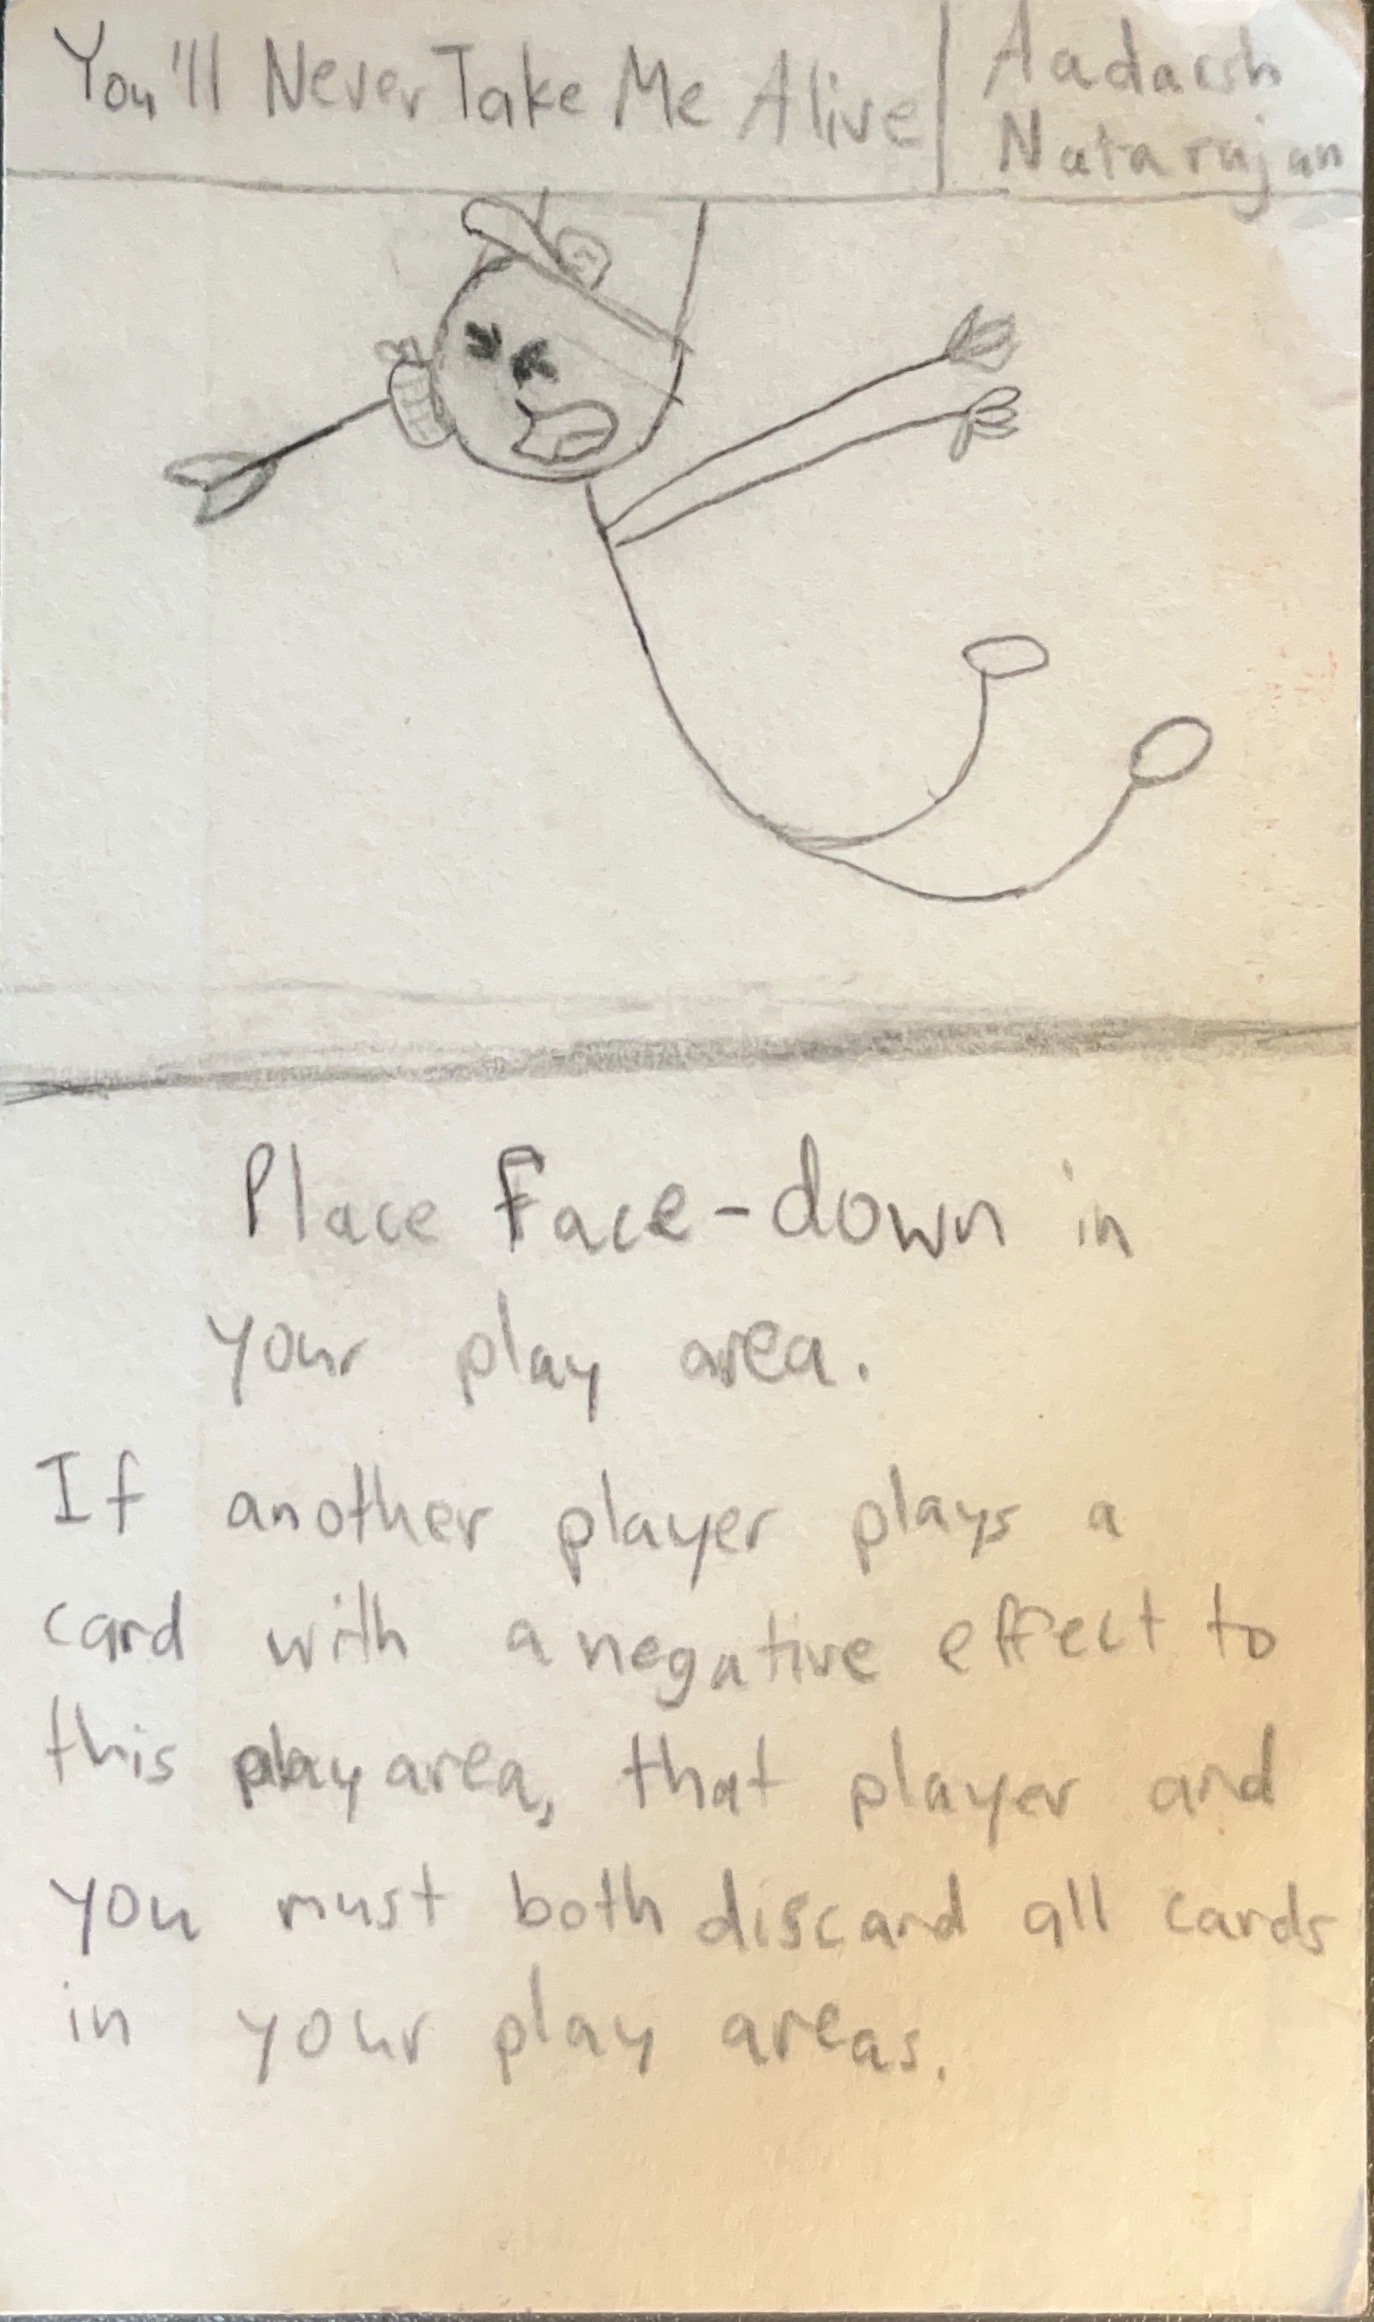 You'll Never Take Me Alive
Aadarsh
Natarajan
Place Face-down in
your play area.
If another player plays a
card with a negative effect to
this play area, that player and
you must both discard all cards
in your play areas.